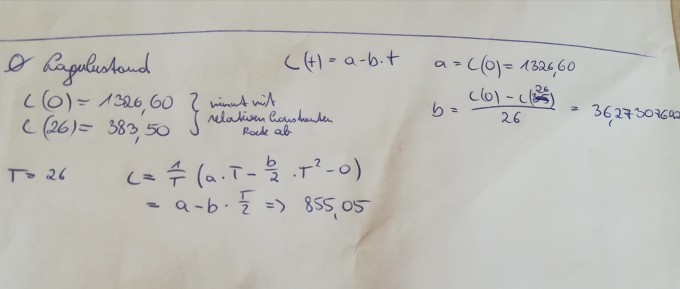 Ø Lagerbestand
L(t) = a - b · t
a = L(0) = 1326,60
L(0) = 1326,60
L(26) = 383,50
nimmt mit
relativen konstanten
Rate ab
b = (L(0) - L(26)) / 26 = 36,27307692
T = 26
L = 1/T (a · T - b/2 · T² - 0)
= a - b · T/2 => 855,05